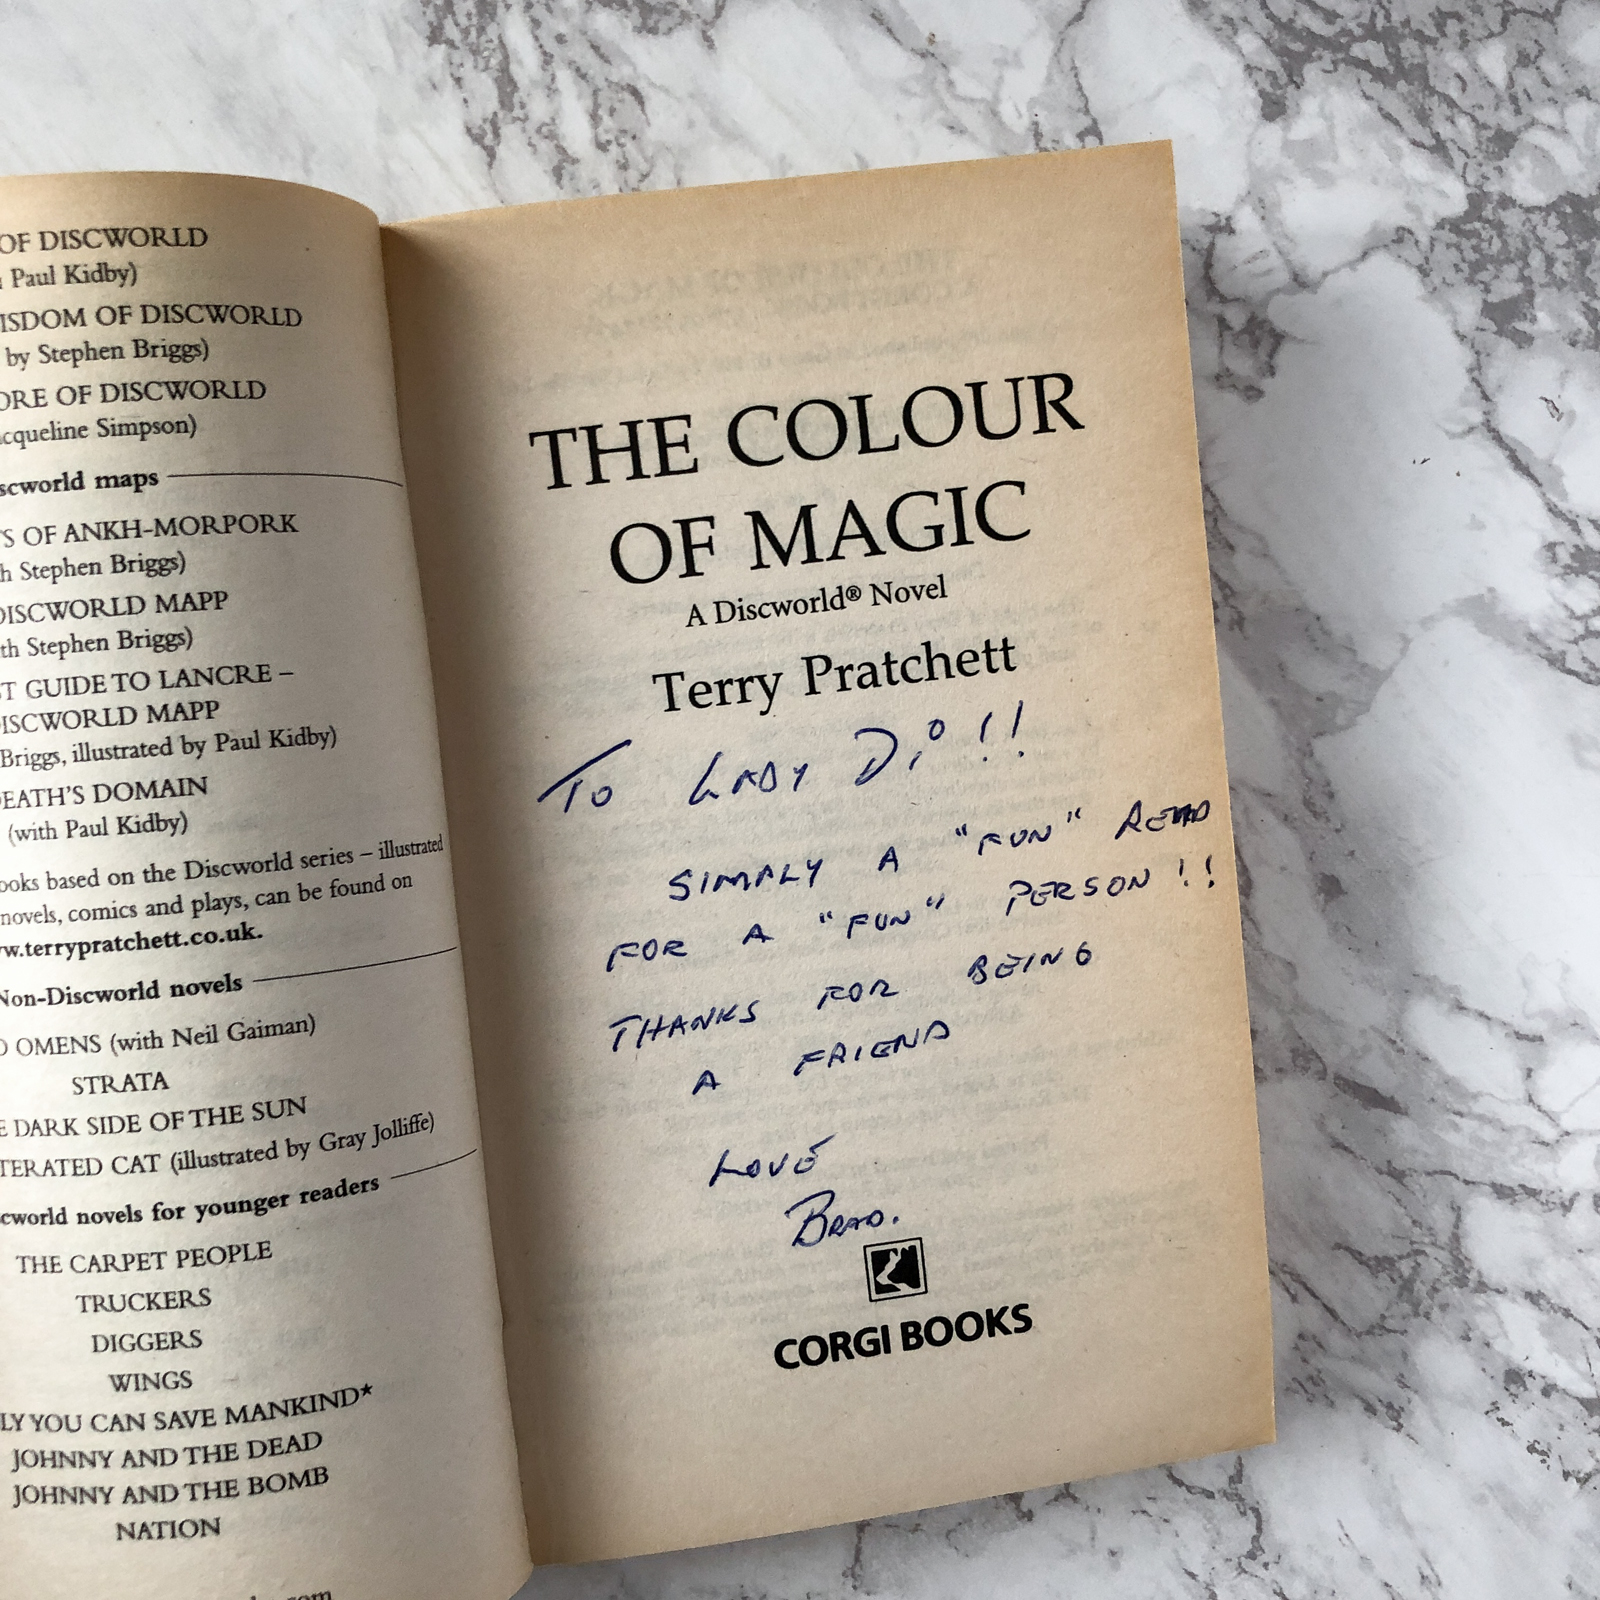 OF DISCWORLD
Paul Kidby)
ISDOM OF DISCWORLD
by Stephen Briggs)
ORE OF DISCWORLD
acqueline Simpson)
scworld maps
S OF ANKH-MORPORK
h Stephen Briggs)
DISCWORLD MAPP
th Stephen Briggs)
T GUIDE TO LANCRE –
DISCWORLD MAPP
Briggs, illustrated by Paul Kidby)
EATH'S DOMAIN
(with Paul Kidby)
ooks based on the Discworld series – illustrated
novels, comics and plays, can be found on
w.terrypratchett.co.uk.
Non-Discworld novels
D OMENS (with Neil Gaiman)
STRATA
E DARK SIDE OF THE SUN
TERATED CAT (illustrated by Gray Jolliffe)
cworld novels for younger readers
THE CARPET PEOPLE
TRUCKERS
DIGGERS
WINGS
LY YOU CAN SAVE MANKIND*
JOHNNY AND THE DEAD
JOHNNY AND THE BOMB
NATION
THE COLOUR
OF MAGIC
A Discworld® Novel
Terry Pratchett
TO LADY Di!!
SIMPLY A "FUN" READ
FOR A "FUN" PERSON!!
THANKS FOR BEING
A FRIEND
LOVE
BRAD.
CORGI BOOKS